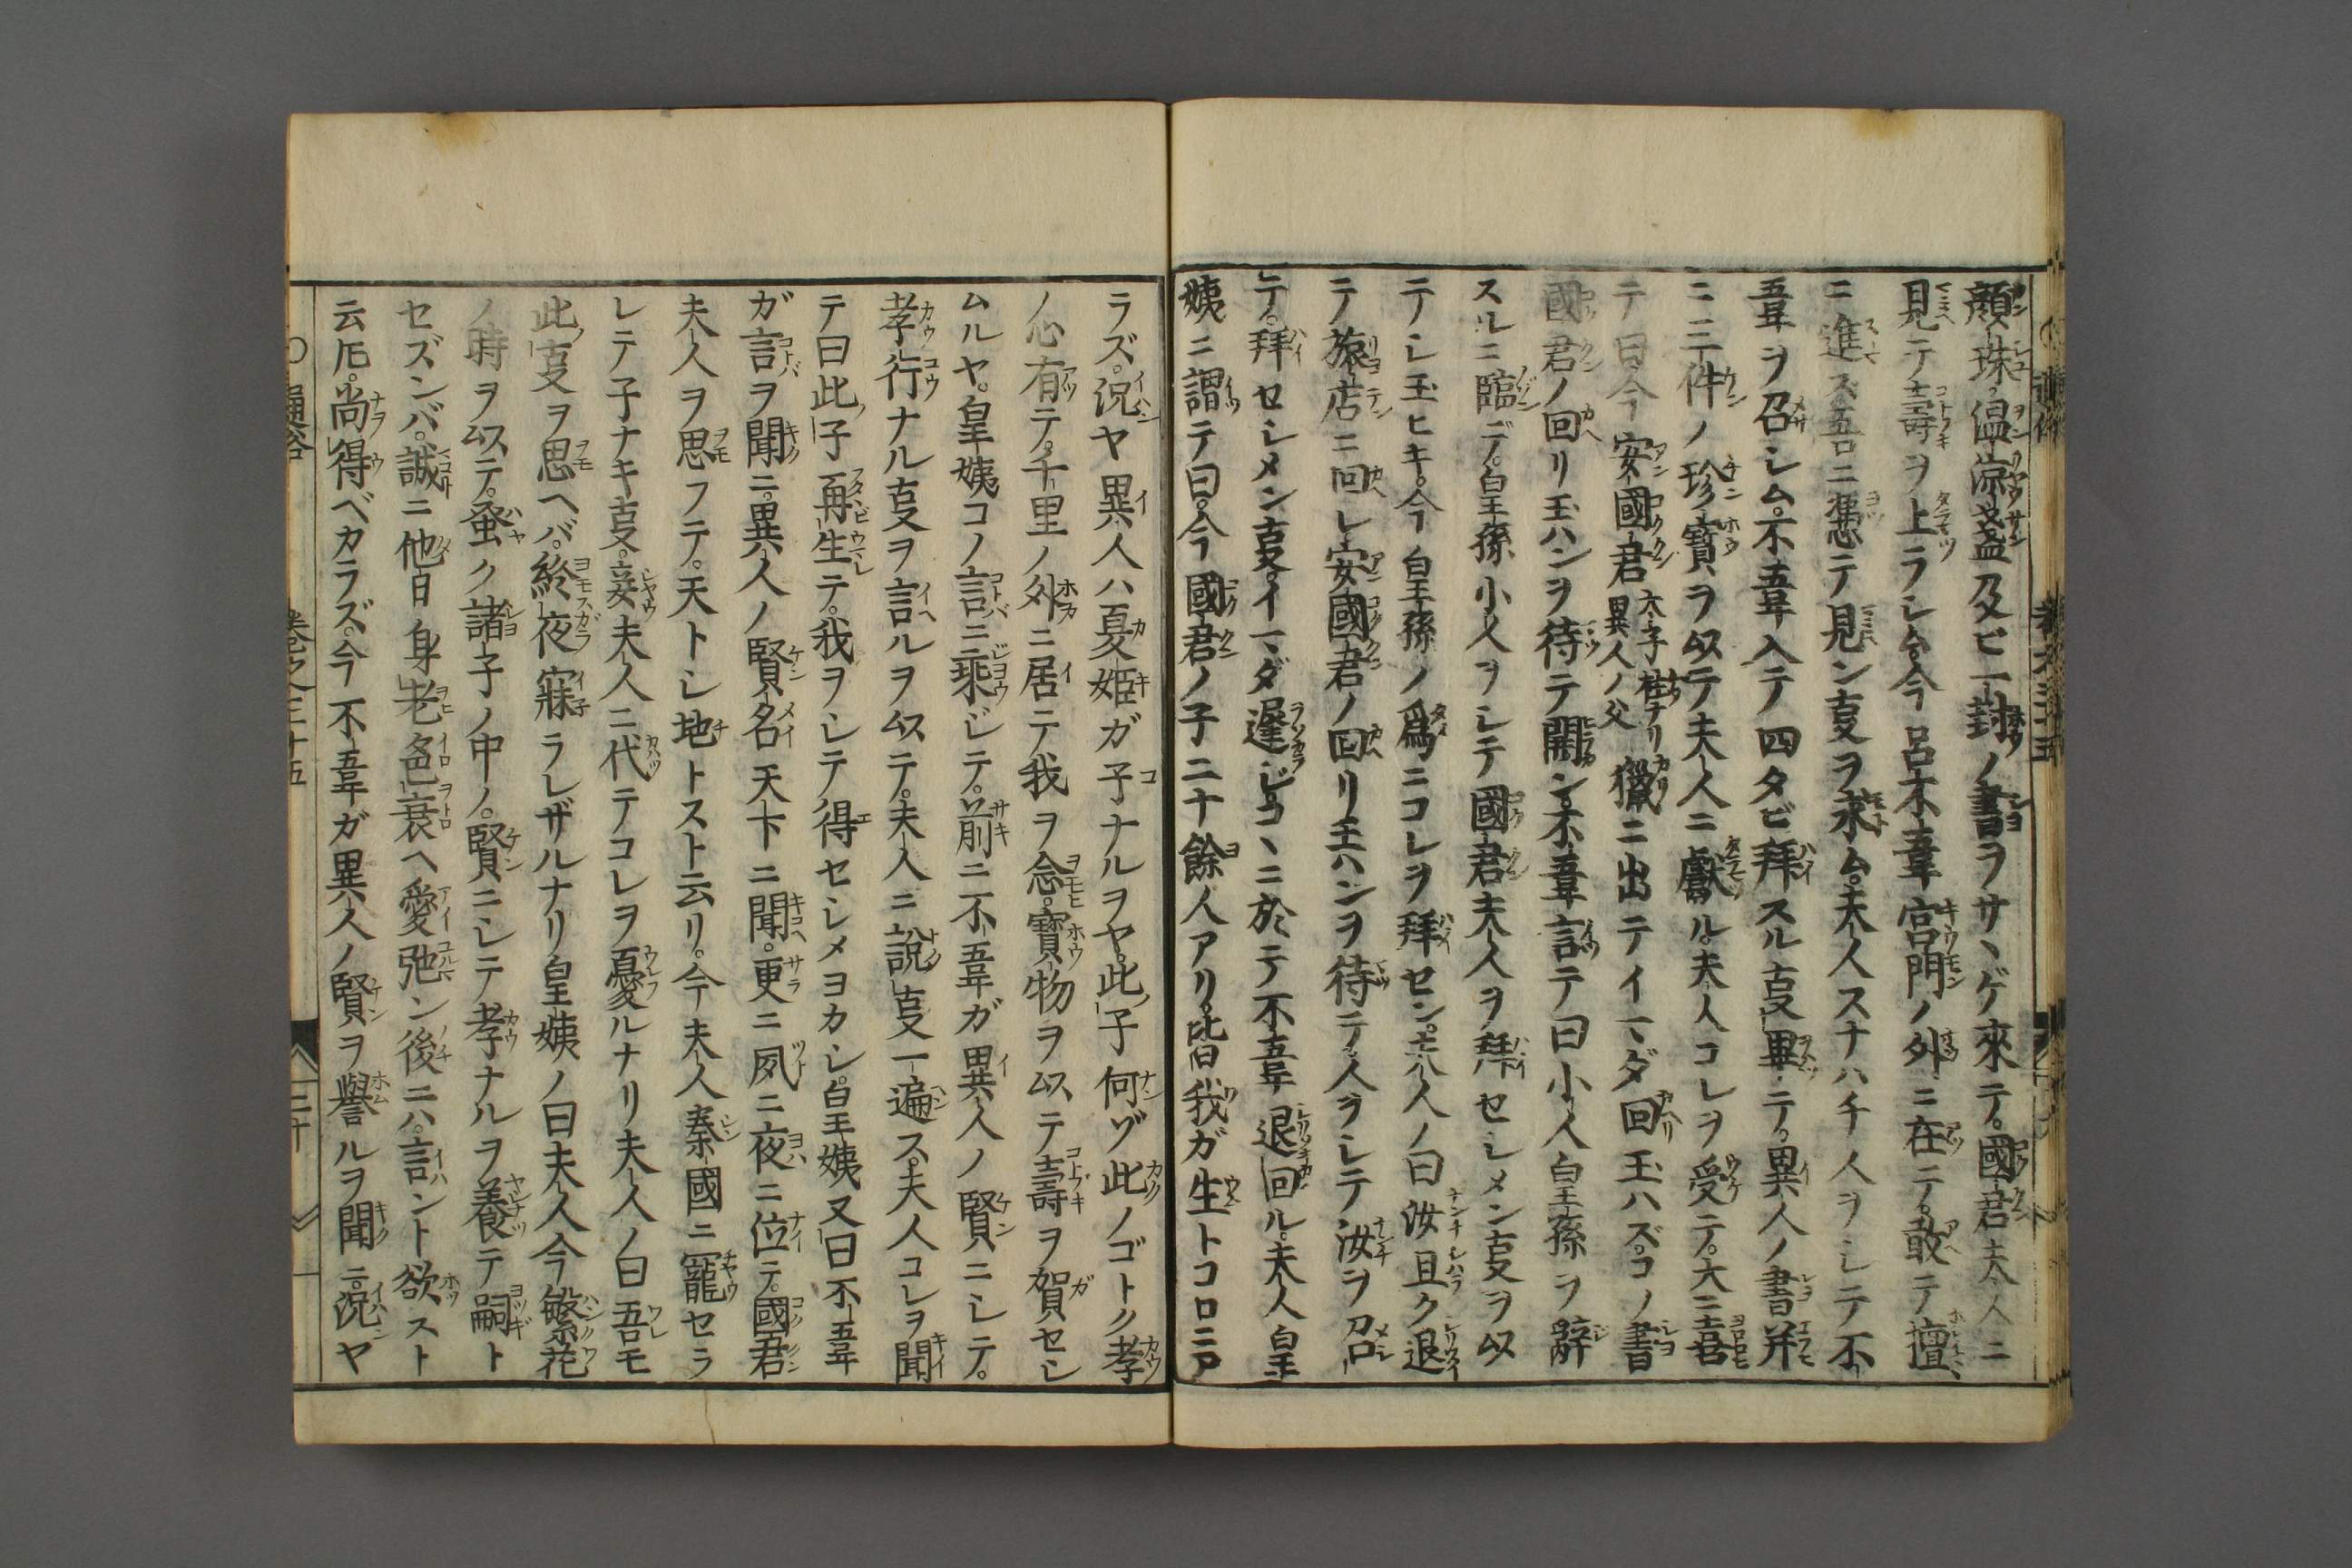 顔珠温凉盞及ヒ一封ノ書ヲサヽゲ來テ。國君夫人ニ
見テ壽ヲ上ラシム。今呂不韋宮門ノ外ニ在テ。敢テ擅
ニ進ズ。吾ニ憑テ見ン㕝ヲ求ム。夫人スナハチ人ヲシテ不
韋ヲ召シム。不韋入テ四タビ拜スル㕝畢テ。異人ノ書并
ニ三件ノ珍寶ヲ以テ夫人ニ獻ル。夫人コレヲ受テ。大ニ喜
テ曰今安國君太子柱ナリ異人ノ父獵ニ出テイマダ回玉ハズ。コノ書
國君ノ回リ玉ハンヲ待テ開ン。不韋言テ曰小人皇孫ヲ辭
スルニ臨デ。皇孫小人ヲシテ國君夫人ヲ拜セシメン㕝ヲ以
テシ玉ヒキ。今皇孫ノ爲ニコレヲ拜セン。夫人ノ曰汝且ク退
テ旅店ニ回レ安國君ノ回リ玉ハンヲ待テ人ヲシテ汝ヲ召
テ。拜セシメン㕝。イマダ遲ジ。コヽニ於テ不韋退回ル。夫人皇
姨ニ謂テ曰。今國君ノ子二十餘人アリ。皆我ガ生トコロニア
ラズ。況ヤ異人ハ夏姫ガ子ナルヲヤ。此子何ゾ此ノゴトク孝
ノ心有テ。千里ノ外ニ居テ我ヲ念。寶物ヲ以テ壽ヲ賀セシ
ムルヤ。皇姨コノ言ニ乘ジテ。前ニ不韋ガ異人ノ賢ニシテ。
孝行ナル㕝ヲ言ルヲ以テ。夫人ニ說㕝一遍ス。夫人コレヲ聞
テ曰此子再生テ。我ヲシテ得セシメヨカシ。皇姨又曰不韋
ガ言ヲ聞ニ。異人ノ賢名天下ニ聞。更ニ夙ニ夜ニ位テ。國君
夫人ヲ思フテ。天トシ地トスト云リ。今夫人秦國ニ寵セラ
レテ子ナキ㕝。妾夫人ニ代テコレヲ憂ルナリ夫人ノ曰吾モ
此㕝ヲ思ヘバ。終夜寐ラレザルナリ皇姨ノ曰夫人今繁花
ノ時ヲ以テ。蚤ク諸子ノ中ノ。賢ニシテ孝ナルヲ養テ嗣ト
セズンバ。誠ニ他日身老色衰ヘ愛弛ン後ニハ。言ント欲スト
云𪜈。尚得ベカラズ。今不韋ガ異人ノ賢ヲ譽ルヲ聞ニ。況ヤ
通俗
卷之三十五
三十